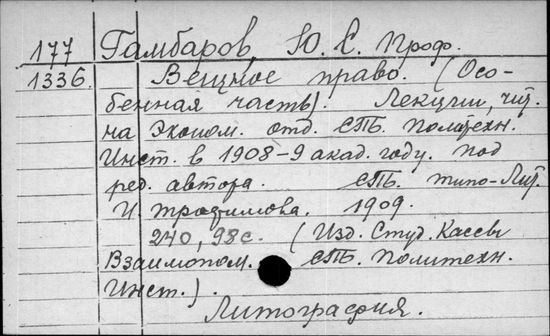 177 Гамбаров, Ю. С. Проф.
1336. Вещное право. (Осо-
бенная часть). Лекции, чит.
на Эконом. отд. СПб. Политехн.
Инст. в 1908-9 акад. году. Под
ред. автора. СПб. типо-Лит.
И. Трофимова. 1909.
240, 98 с. (Изд. Студ. Кассы
Взаимопом. СПб. Политехн.
Инст.).
Литография.